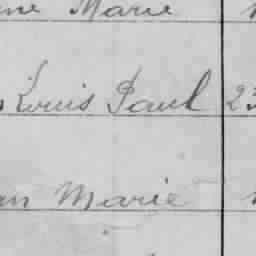 ne Marie
s Louis Paul 23
an Marie